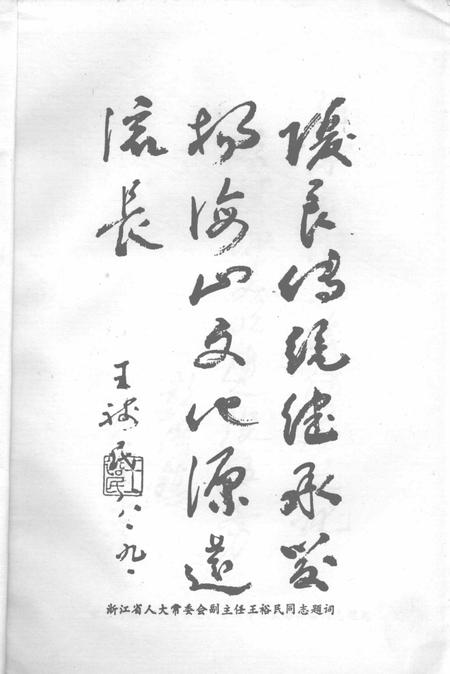 優良传统继承发
扬海山文化源遠
流長
王裕民
八、九、
浙江省人大常委会副主任王裕民同志题词